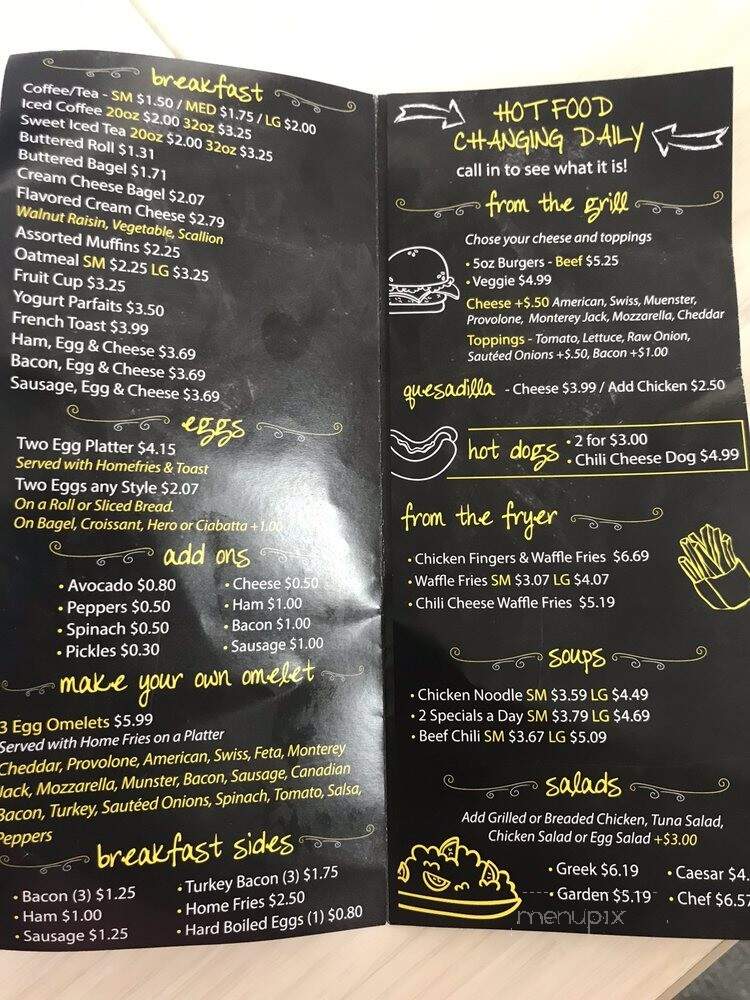 breakfast
Coffee/Tea - SM $1.50 / MED $1.75 / LG $2.00
Iced Coffee 20oz $2.00 32oz $3.25
Sweet Iced Tea 20oz $2.00 32oz $3.25
Buttered Roll $1.31
Buttered Bagel $1.71
Cream Cheese Bagel $2.07
Flavored Cream Cheese $2.79
Walnut Raisin, Vegetable, Scallion
Assorted Muffins $2.25
Oatmeal SM $2.25 LG $3.25
Fruit Cup $3.25
Yogurt Parfaits $3.50
French Toast $3.99
Ham, Egg & Cheese $3.69
Bacon, Egg & Cheese $3.69
Sausage, Egg & Cheese $3.69
eggs
Two Egg Platter $4.15
Served with Homefries & Toast
Two Eggs any Style $2.07
On a Roll or Sliced Bread.
On Bagel, Croissant, Hero or Ciabatta +1.00
add ons
• Avocado $0.80
• Peppers $0.50
• Spinach $0.50
• Pickles $0.30
• Cheese $0.50
• Ham $1.00
• Bacon $1.00
• Sausage $1.00
make your own omelet
3 Egg Omelets $5.99
Served with Home Fries on a Platter
Cheddar, Provolone, American, Swiss, Feta, Monterey
Jack, Mozzarella, Munster, Bacon, Sausage, Canadian
Bacon, Turkey, Sautéed Onions, Spinach, Tomato, Salsa,
Peppers
breakfast sides
• Bacon (3) $1.25
• Ham $1.00
• Sausage $1.25
• Turkey Bacon (3) $1.75
• Home Fries $2.50
• Hard Boiled Eggs (1) $0.80
HOT FOOD
CHANGING DAILY
call in to see what it is!
from the grill
Chose your cheese and toppings
• 5oz Burgers - Beef $5.25
• Veggie $4.99
Cheese +$.50 American, Swiss, Muenster,
Provolone, Monterey Jack, Mozzarella, Cheddar
Toppings - Tomato, Lettuce, Raw Onion,
Sautéed Onions +$.50, Bacon +$1.00
quesadilla - Cheese $3.99 / Add Chicken $2.50
hot dogs
• 2 for $3.00
• Chili Cheese Dog $4.99
from the fryer
• Chicken Fingers & Waffle Fries $6.69
• Waffle Fries SM $3.07 LG $4.07
• Chili Cheese Waffle Fries $5.19
soups
• Chicken Noodle SM $3.59 LG $4.49
• 2 Specials a Day SM $3.79 LG $4.69
• Beef Chili SM $3.67 LG $5.09
salads
Add Grilled or Breaded Chicken, Tuna Salad,
Chicken Salad or Egg Salad +$3.00
• Greek $6.19
• Caesar $4.
• Garden $5.19
• Chef $6.57
menupix